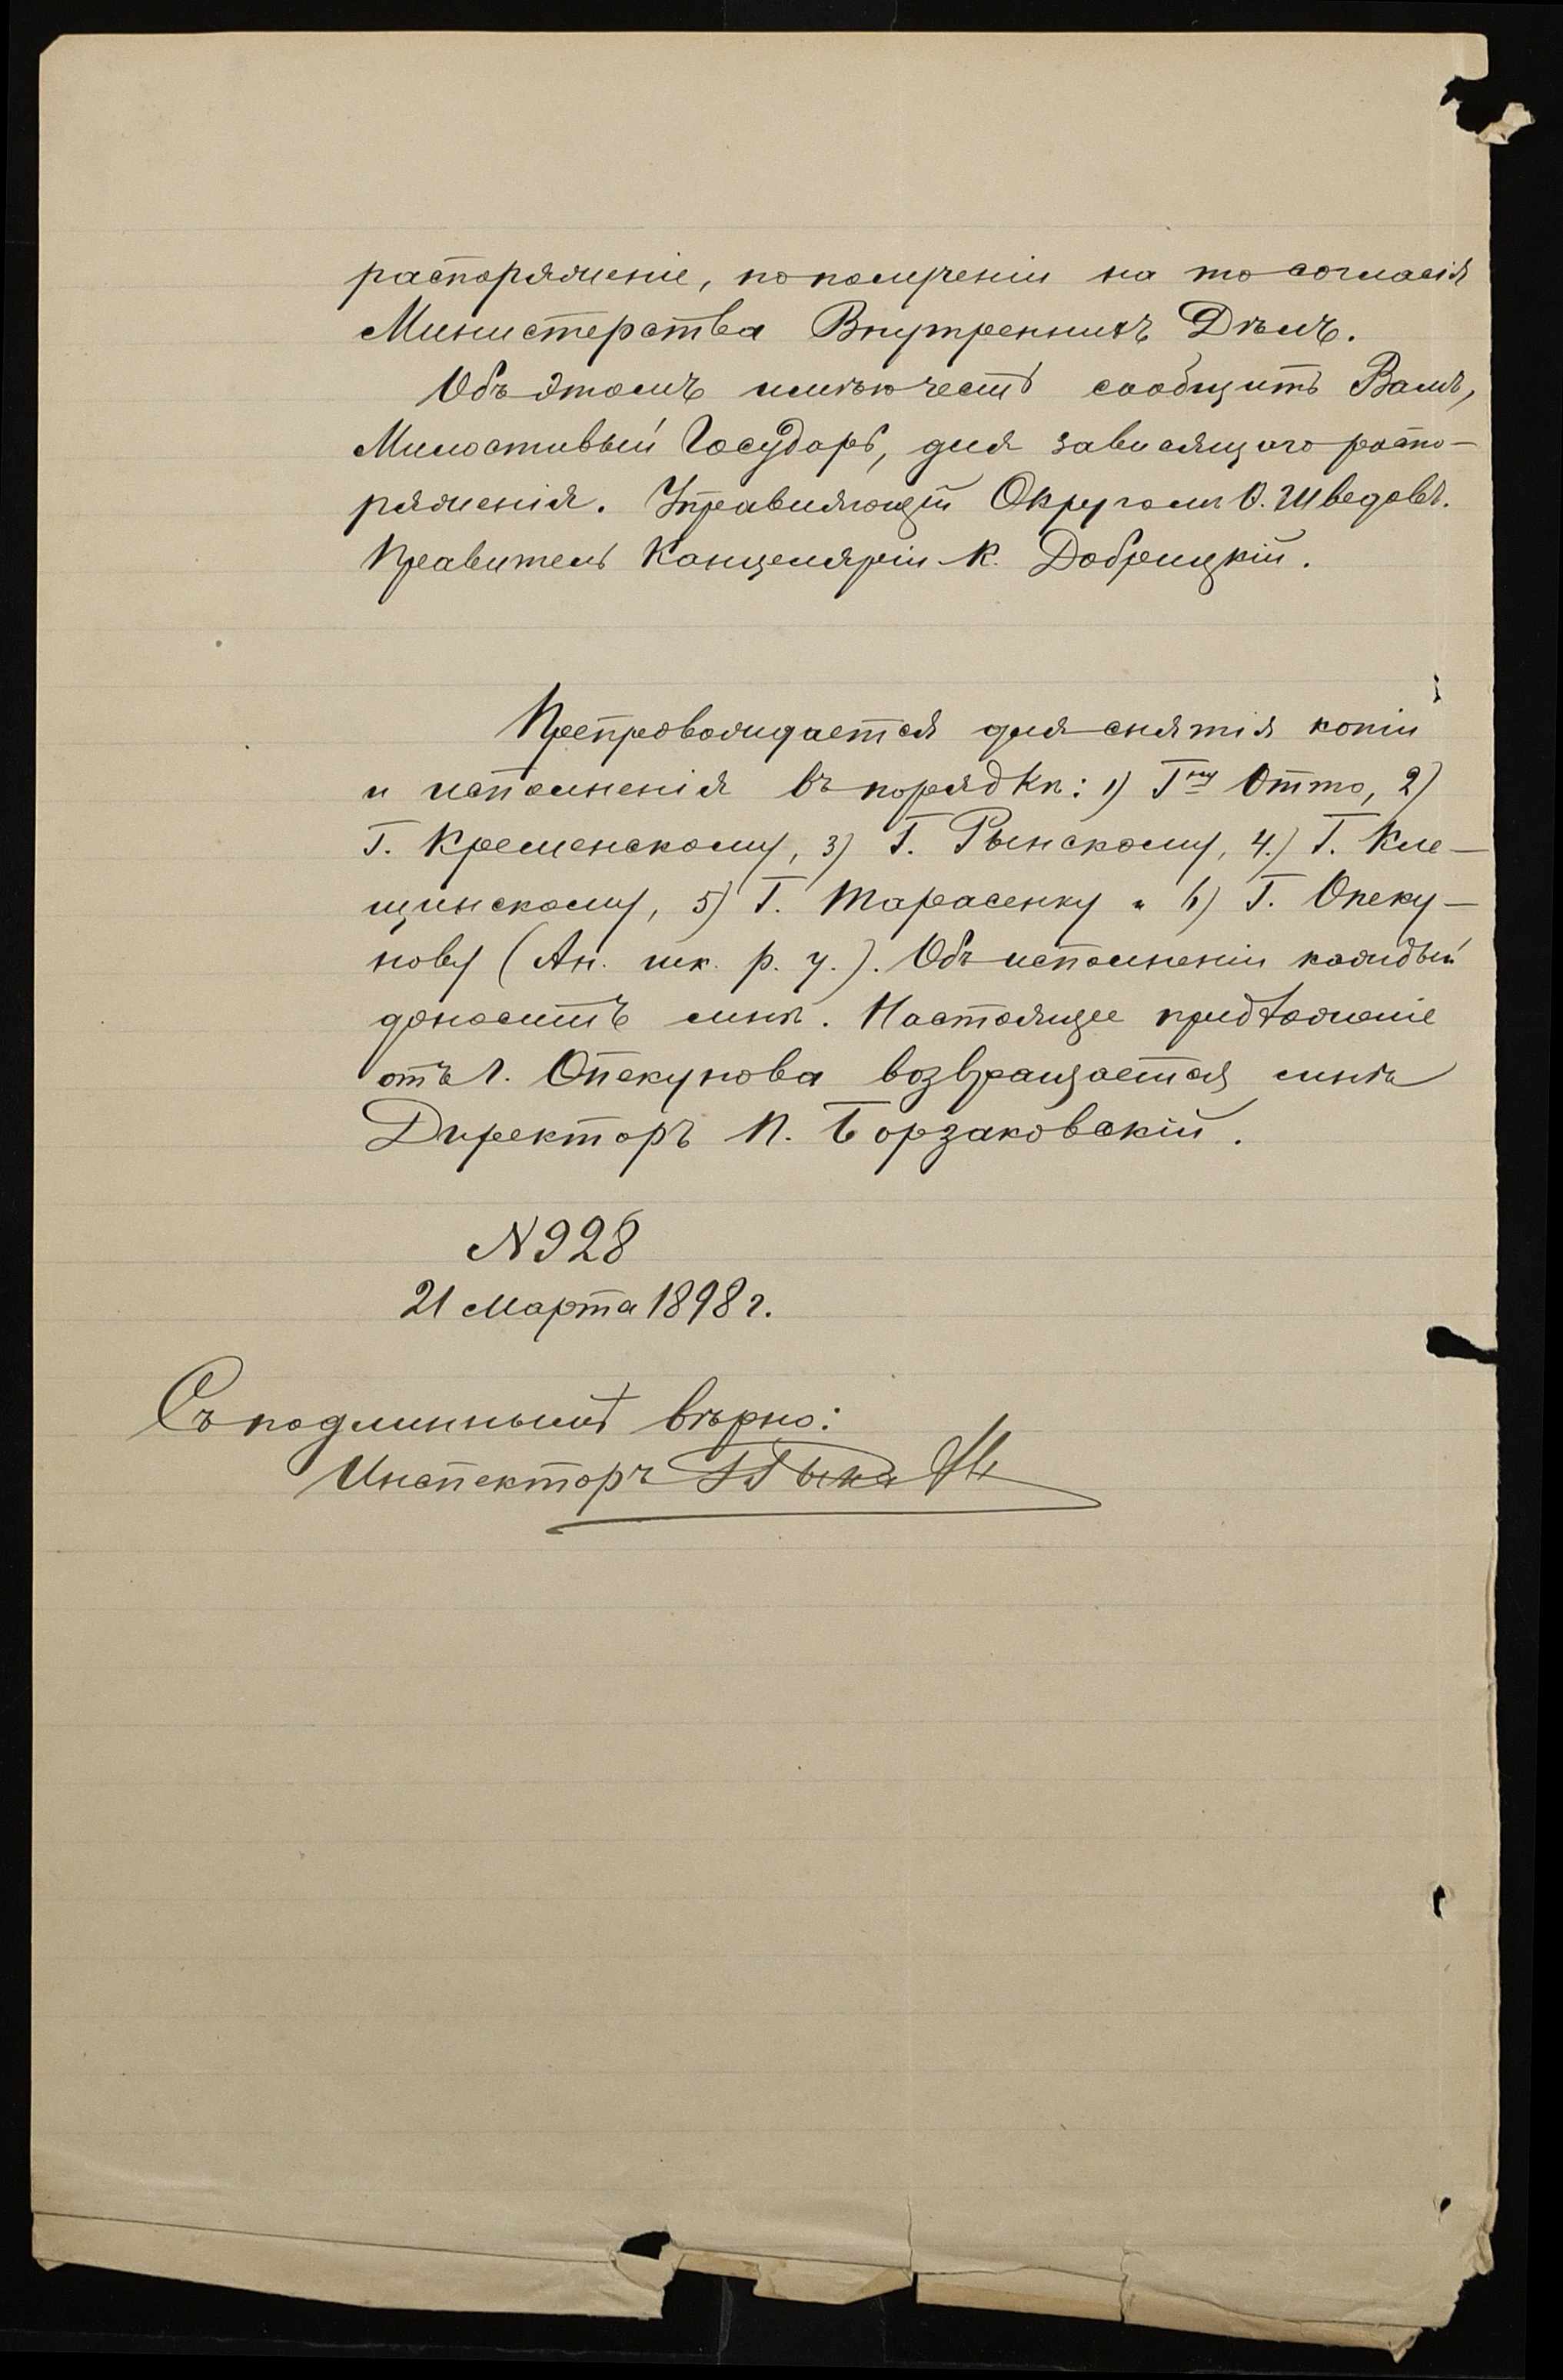 распоряженіе, по полученіи на то согласія
Министерства Внутреннихъ Дѣлъ.
Объ этомъ имѣю честь сообщить Вамъ,
Милостивый Государь, для зависящаго распо-
ряженія. Управляющій Округомъ Ѳ. Шведовъ.
Правитель Канцеляріи К. Добрицкій.
Препровождается для снятія копіи
и исполненія въ порядкѣ: 1) Гну Отто, 2)
Г. Кременскому, 3) Г. Рынскому, 4.) Г. Кле-
щинскому, 5) Г. Тарасенку и 6) Г. Опеку-
нову (Ан. шк. р. у.). Объ исполненіи каждый
доноситъ мнѣ. Настоящее предложеніе
отъ г. Опекунова возвращается мнѣ
Директоръ П. Борзаковскій.
N 928
21 Марта 1898 г.
Съ подлиннымъ вѣрно:
Инспекторъ